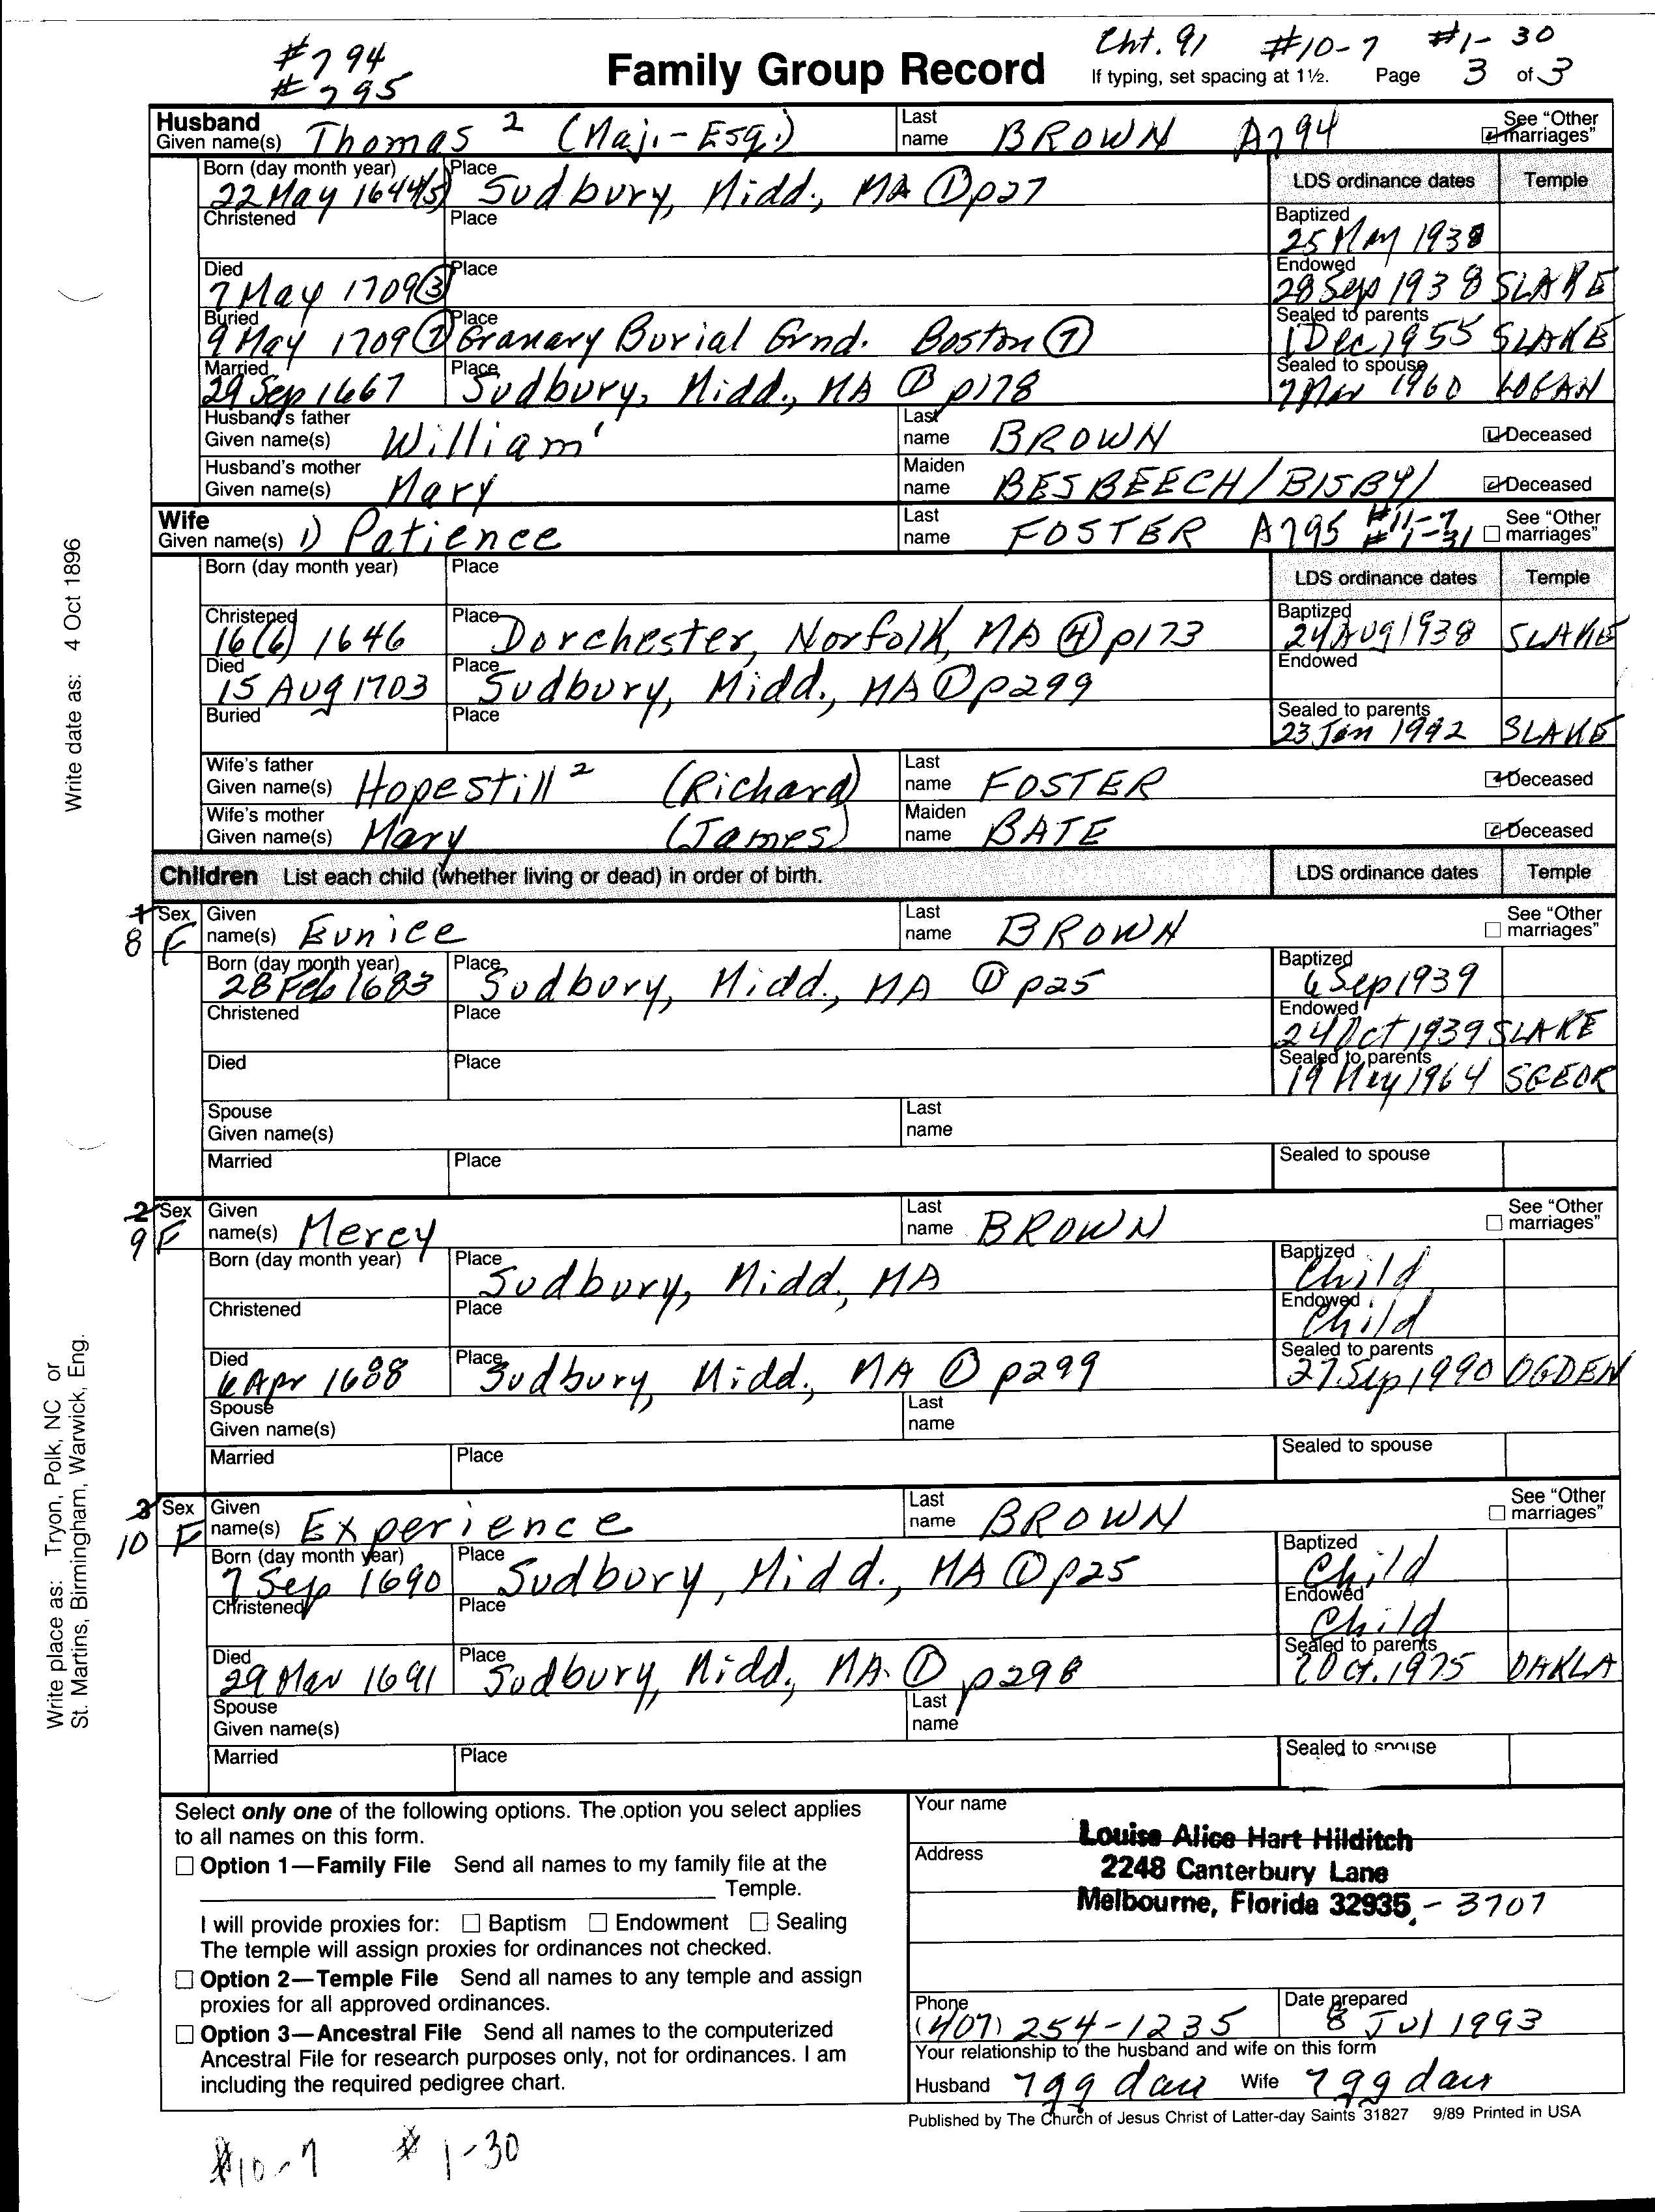 #794 Cht. 91 #10-7 #1-30
#795 Family Group Record If typing, set spacing at 1½. Page 3 of 3
Husband Given name(s) Thomas ² (Maj.-Esq.) Last name BROWN A794 See "Other marriages"
Born (day month year) 22 May 1644/5 Place Sudbury, Midd., MA ① p27 LDS ordinance dates Temple
Christened Place Baptized 25 May 1938
Died 7 May 1709 ③ Place Endowed 28 Sep 1938 SLAKE
Buried 9 May 1709 ⑦ Place Granary Burial Grnd. Boston ⑦ Sealed to parents 1 Dec 1955 SLAKE
Married 29 Sep 1667 Place Sudbury, Midd., MA ① p178 Sealed to spouse 7 Mar 1960 LOGAN
Husband's father Given name(s) William ¹ Last name BROWN Deceased
Husband's mother Given name(s) Mary Maiden name BESBEECH/BISBY/ Deceased
Wife Given name(s) 1) Patience Last name FOSTER A795 #11-7 #1-31 See "Other marriages"
Born (day month year) Place LDS ordinance dates Temple
Christened 16 (6) 1646 Place Dorchester, Norfolk, MA ④ p173 Baptized 24 Aug 1938 SLAKE
Died 15 Aug 1703 Place Sudbury, Midd., MA ① p299 Endowed
Buried Place Sealed to parents 23 Jan 1992 SLAKE
Wife's father Given name(s) Hopestill ² (Richard) Last name FOSTER Deceased
Wife's mother Given name(s) Mary (James) Maiden name BATE Deceased
Children List each child (whether living or dead) in order of birth. LDS ordinance dates Temple
1 8 Sex F Given name(s) Eunice Last name BROWN See "Other marriages"
Born (day month year) 28 Feb 1683 Place Sudbury, Midd., MA ① p25 Baptized 6 Sep 1939
Christened Place Endowed 24 Oct 1939 SLAKE
Died Place Sealed to parents 19 May 1964 SGEOR
Spouse Given name(s) Last name
Married Place Sealed to spouse
2 9 Sex F Given name(s) Mercy Last name BROWN See "Other marriages"
Born (day month year) Place Sudbury, Midd, MA Baptized Child
Christened Place Endowed Child
Died 6 Apr 1688 Place Sudbury, Midd., MA ① p299 Sealed to parents 27 Sep 1990 OGDEN
Spouse Given name(s) Last name
Married Place Sealed to spouse
3 10 Sex F Given name(s) Experience Last name BROWN See "Other marriages"
Born (day month year) 7 Sep 1690 Place Sudbury, Midd., MA ① p25 Baptized Child
Christened Place Endowed Child
Died 29 Mar 1691 Place Sudbury, Midd., MA. ① p298 Sealed to parents Oct. 1975 OAKLA
Spouse Given name(s) Last name
Married Place Sealed to spouse
Select only one of the following options. The option you select applies
to all names on this form.
Option 1—Family File Send all names to my family file at the
Temple.
I will provide proxies for: Baptism Endowment Sealing
The temple will assign proxies for ordinances not checked.
Option 2—Temple File Send all names to any temple and assign
proxies for all approved ordinances.
Option 3—Ancestral File Send all names to the computerized
Ancestral File for research purposes only, not for ordinances. I am
including the required pedigree chart.
Your name Louise Alice Hart Hilditch
Address 2248 Canterbury Lane
Melbourne, Florida 32935 - 3707
Phone (407) 254-1235 Date prepared 8 Jul 1993
Your relationship to the husband and wife on this form
Husband 7gg dau Wife 7gg dau
Published by The Church of Jesus Christ of Latter-day Saints 31827 9/89 Printed in USA
#10-7 #1-30
Write date as: 4 Oct 1896
Write place as: Tryon, Polk, NC or
St. Martins, Birmingham, Warwick, Eng.